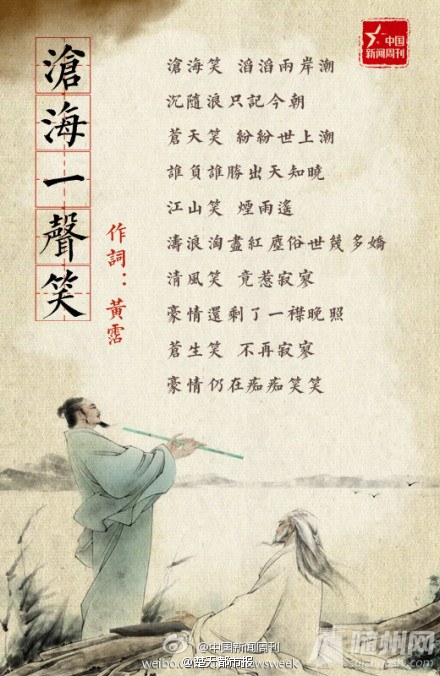 中国
新闻周刊
滄海一聲笑
作詞：黃霑
滄海笑 滔滔兩岸潮
沉隨浪只記今朝
蒼天笑 紛紛世上潮
誰負誰勝出天知曉
江山笑 煙雨遙
濤浪淘盡紅塵俗世幾多嬌
清風笑 竟惹寂寥
豪情還剩了一襟晚照
蒼生笑 不再寂寥
豪情仍在痴痴笑笑
@中国新闻周刊
@楚天都市报
随州网